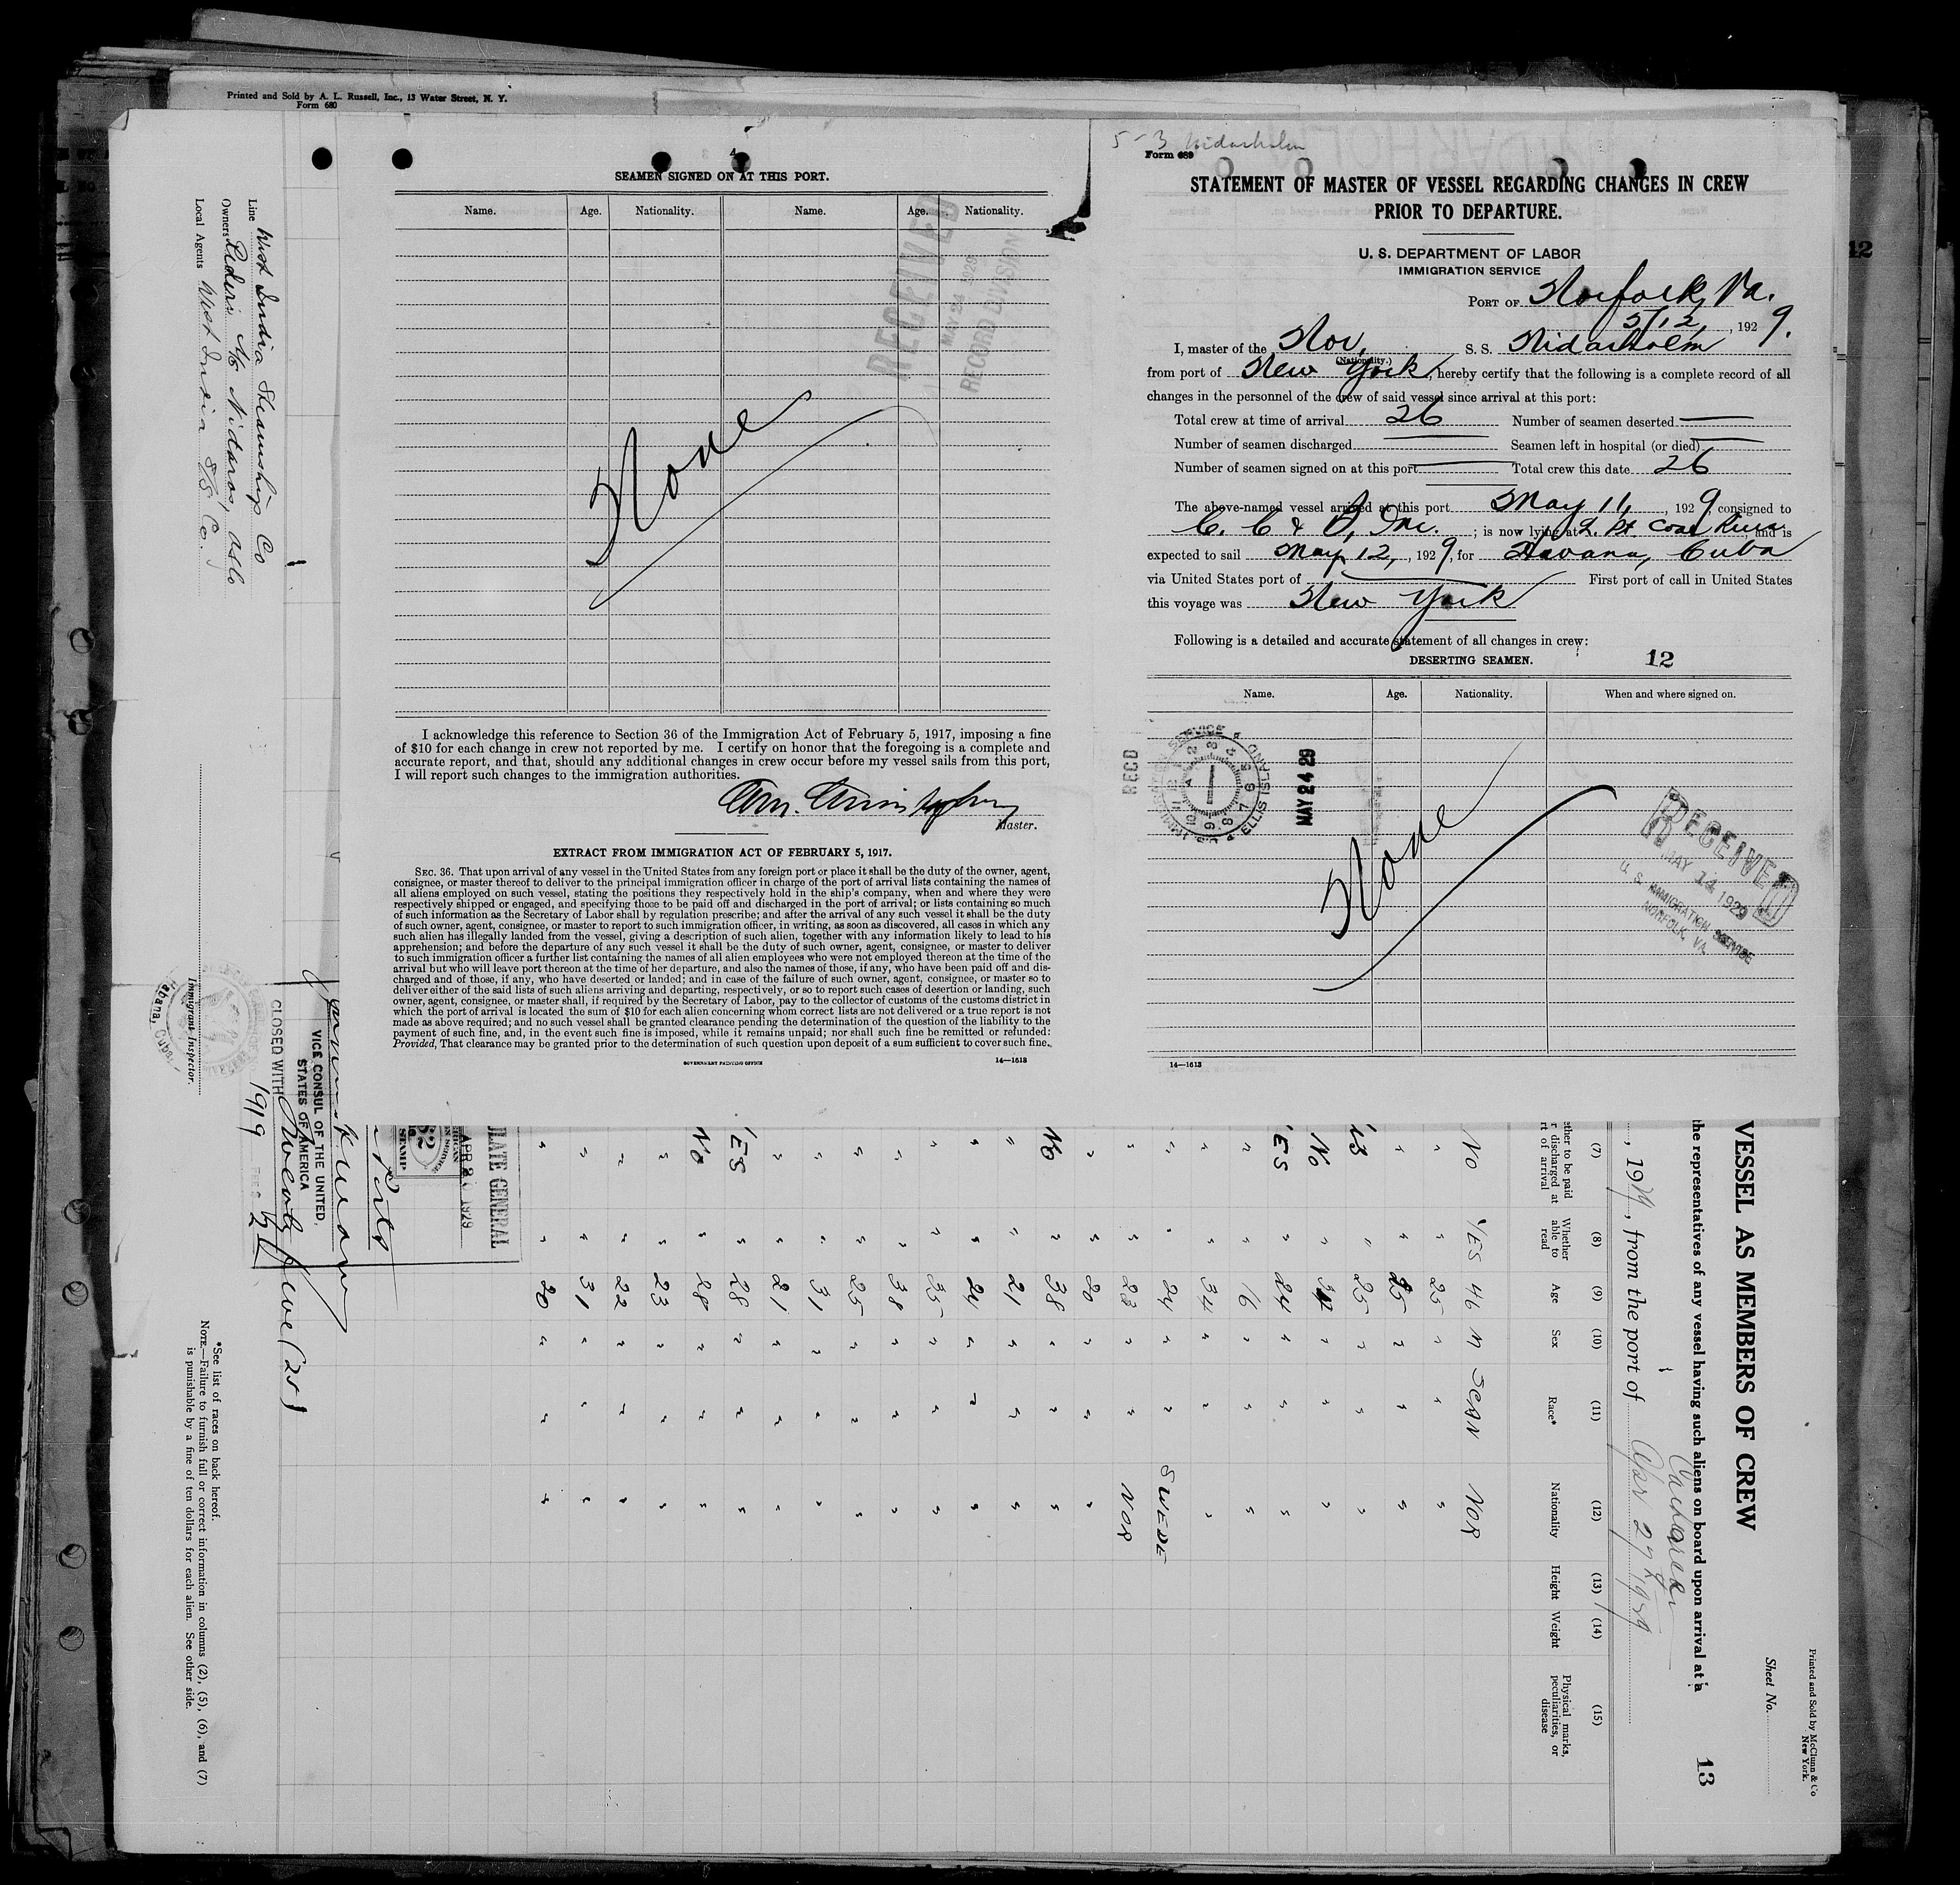 Printed and Sold by A. L. Russell, Inc., 13 Water Street, N. Y.
Form 680
Line West India Steamship Co
Owners Rederi A/S Nidaros, Oslo
Local Agents West India S/S Co.
Immigrant Inspector.
4
SEAMEN SIGNED ON AT THIS PORT.
Name. Age. Nationality. Name. Age. Nationality.
RECEIVED
MAY 24 1929
RECORD DIVISION
None
I acknowledge this reference to Section 36 of the Immigration Act of February 5, 1917, imposing a fine
of $10 for each change in crew not reported by me. I certify on honor that the foregoing is a complete and
accurate report, and that, should any additional changes in crew occur before my vessel sails from this port,
I will report such changes to the immigration authorities.
Master.
EXTRACT FROM IMMIGRATION ACT OF FEBRUARY 5, 1917.
SEC. 36. That upon arrival of any vessel in the United States from any foreign port or place it shall be the duty of the owner, agent,
consignee, or master thereof to deliver to the principal immigration officer in charge of the port of arrival lists containing the names of
all aliens employed on such vessel, stating the positions they respectively hold in the ship's company, when and where they were
respectively shipped or engaged, and specifying those to be paid off and discharged in the port of arrival; or lists containing so much
of such information as the Secretary of Labor shall by regulation prescribe; and after the arrival of any such vessel it shall be the duty
of such owner, agent, consignee, or master to report to such immigration officer, in writing, as soon as discovered, all cases in which any
such alien has illegally landed from the vessel, giving a description of such alien, together with any information likely to lead to his
apprehension; and before the departure of any such vessel it shall be the duty of such owner, agent, consignee, or master to deliver
to such immigration officer a further list containing the names of all alien employees who were not employed thereon at the time of the
arrival but who will leave port thereon at the time of her departure, and also the names of those, if any, who have been paid off and dis-
charged and of those, if any, who have deserted or landed; and in case of the failure of such owner, agent, consignee, or master so to
deliver either of the said lists of such aliens arriving and departing, respectively, or so to report such cases of desertion or landing, such
owner, agent, consignee, or master shall, if required by the Secretary of Labor, pay to the collector of customs of the customs district in
which the port of arrival is located the sum of $10 for each alien concerning whom correct lists are not delivered or a true report is not
made as above required; and no such vessel shall be granted clearance pending the determination of the question of the liability to the
payment of such fine, and, in the event such fine is imposed, while it remains unpaid; nor shall such fine be remitted or refunded:
Provided, That clearance may be granted prior to the determination of such question upon deposit of a sum sufficient to cover such fine.
GOVERNMENT PRINTING OFFICE 14—1613
5-3 Nidarholm
Form 689
STATEMENT OF MASTER OF VESSEL REGARDING CHANGES IN CREW
PRIOR TO DEPARTURE.
U. S. DEPARTMENT OF LABOR
IMMIGRATION SERVICE
PORT OF Norfolk, Va.
5/12, 1929.
I, master of the Nor. S. S. Nidarholm
(Nationality.)
from port of New York, hereby certify that the following is a complete record of all
changes in the personnel of the crew of said vessel since arrival at this port:
Total crew at time of arrival 26 Number of seamen deserted
Number of seamen discharged Seamen left in hospital (or died)
Number of seamen signed on at this port Total crew this date 26
The above-named vessel arrived at this port May 11, 1929, consigned to
C. C & O, Inc. ; is now lying at L. Pt. Coal Piers and is
expected to sail May 12, 1929, for Havana, Cuba
via United States port of First port of call in United States
this voyage was New York
Following is a detailed and accurate statement of all changes in crew:
DESERTING SEAMEN. 12
Name. Age. Nationality. When and where signed on.
RECD
ELLIS ISLAND
MAY 24 29
None
RECEIVED
MAY 14 1929
U. S. IMMIGRATION SERVICE
NORFOLK, VA.
14—1613
12
Printed and Sold by McClunn & Co
New York.
Sheet No.
13
VESSEL AS MEMBERS OF CREW
the representatives of any vessel having such aliens on board upon arrival at a
, 1929, from the port of
Apr 27th 1929
(7) (8) (9) (10) (11) (12) (13) (14) (15)
ether to be paid
r discharged at
rt of arrival
Whether
able to
read
Age
Sex
Race*
Nationality
Height
Weight
Physical marks,
peculiarities, or
disease
NO YES 46 M SCAN NOR
" " 25 " " "
" " 25 " " "
" 25 " " "
No " " " "
ES " 24 " " "
" " 16 " " "
" " 34 " " "
" " 24 " " SWEDE
" " 23 " " NOR
" " 20 " " "
No " 38 " " "
" " 21 " " "
" " 24 " " "
" " 35 " " "
" " 38 " " "
" " 25 " " "
" " 31 " " "
" " 21 " " "
YES " 28 " " "
No " 28 " " "
" " 23 " " "
" " 22 " " "
" " 31 " " "
" " 20 " " "
LATE GENERAL
APR 2 1929
STAMP
VICE CONSUL OF THE UNITED
STATES OF AMERICA
CLOSED WITH Twenty five (25)
1919
Habana, Cuba
*See list of races on back hereof.
NOTE.—Failure to furnish full or correct information in columns (2), (5), (6), and (7)
is punishable by a fine of ten dollars for each alien. See other side.